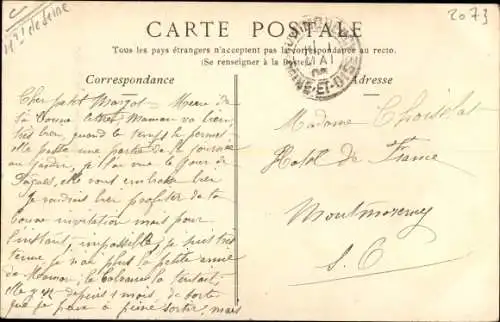 2073
Hts de Seine
CARTE POSTALE
Tous les pays étrangers n'acceptent pas la correspondance au recto.
(Se renseigner à la Poste)
Correspondance
Adresse
MAI
SEINE-ET-OISE
Cher petit Margot – Merci de
ta bonne lettre. Maman va bien,
très bien, quand le temps le permet
elle passe une partie de la journée
au jardin, je l'ai vue le jour de
Pâques, elle vous embrasse bien
je voudrais bien profiter de ta
bonne invitation mais pour
l'instant, impossible, je suis très
tenue, je n'ai plus la petite amie
de Maman,
elle y depuis 1 mois, de sorte
que je peux à peine sortir, mais
Madame Choiselat
Hotel de France
Montmorency
S. O.